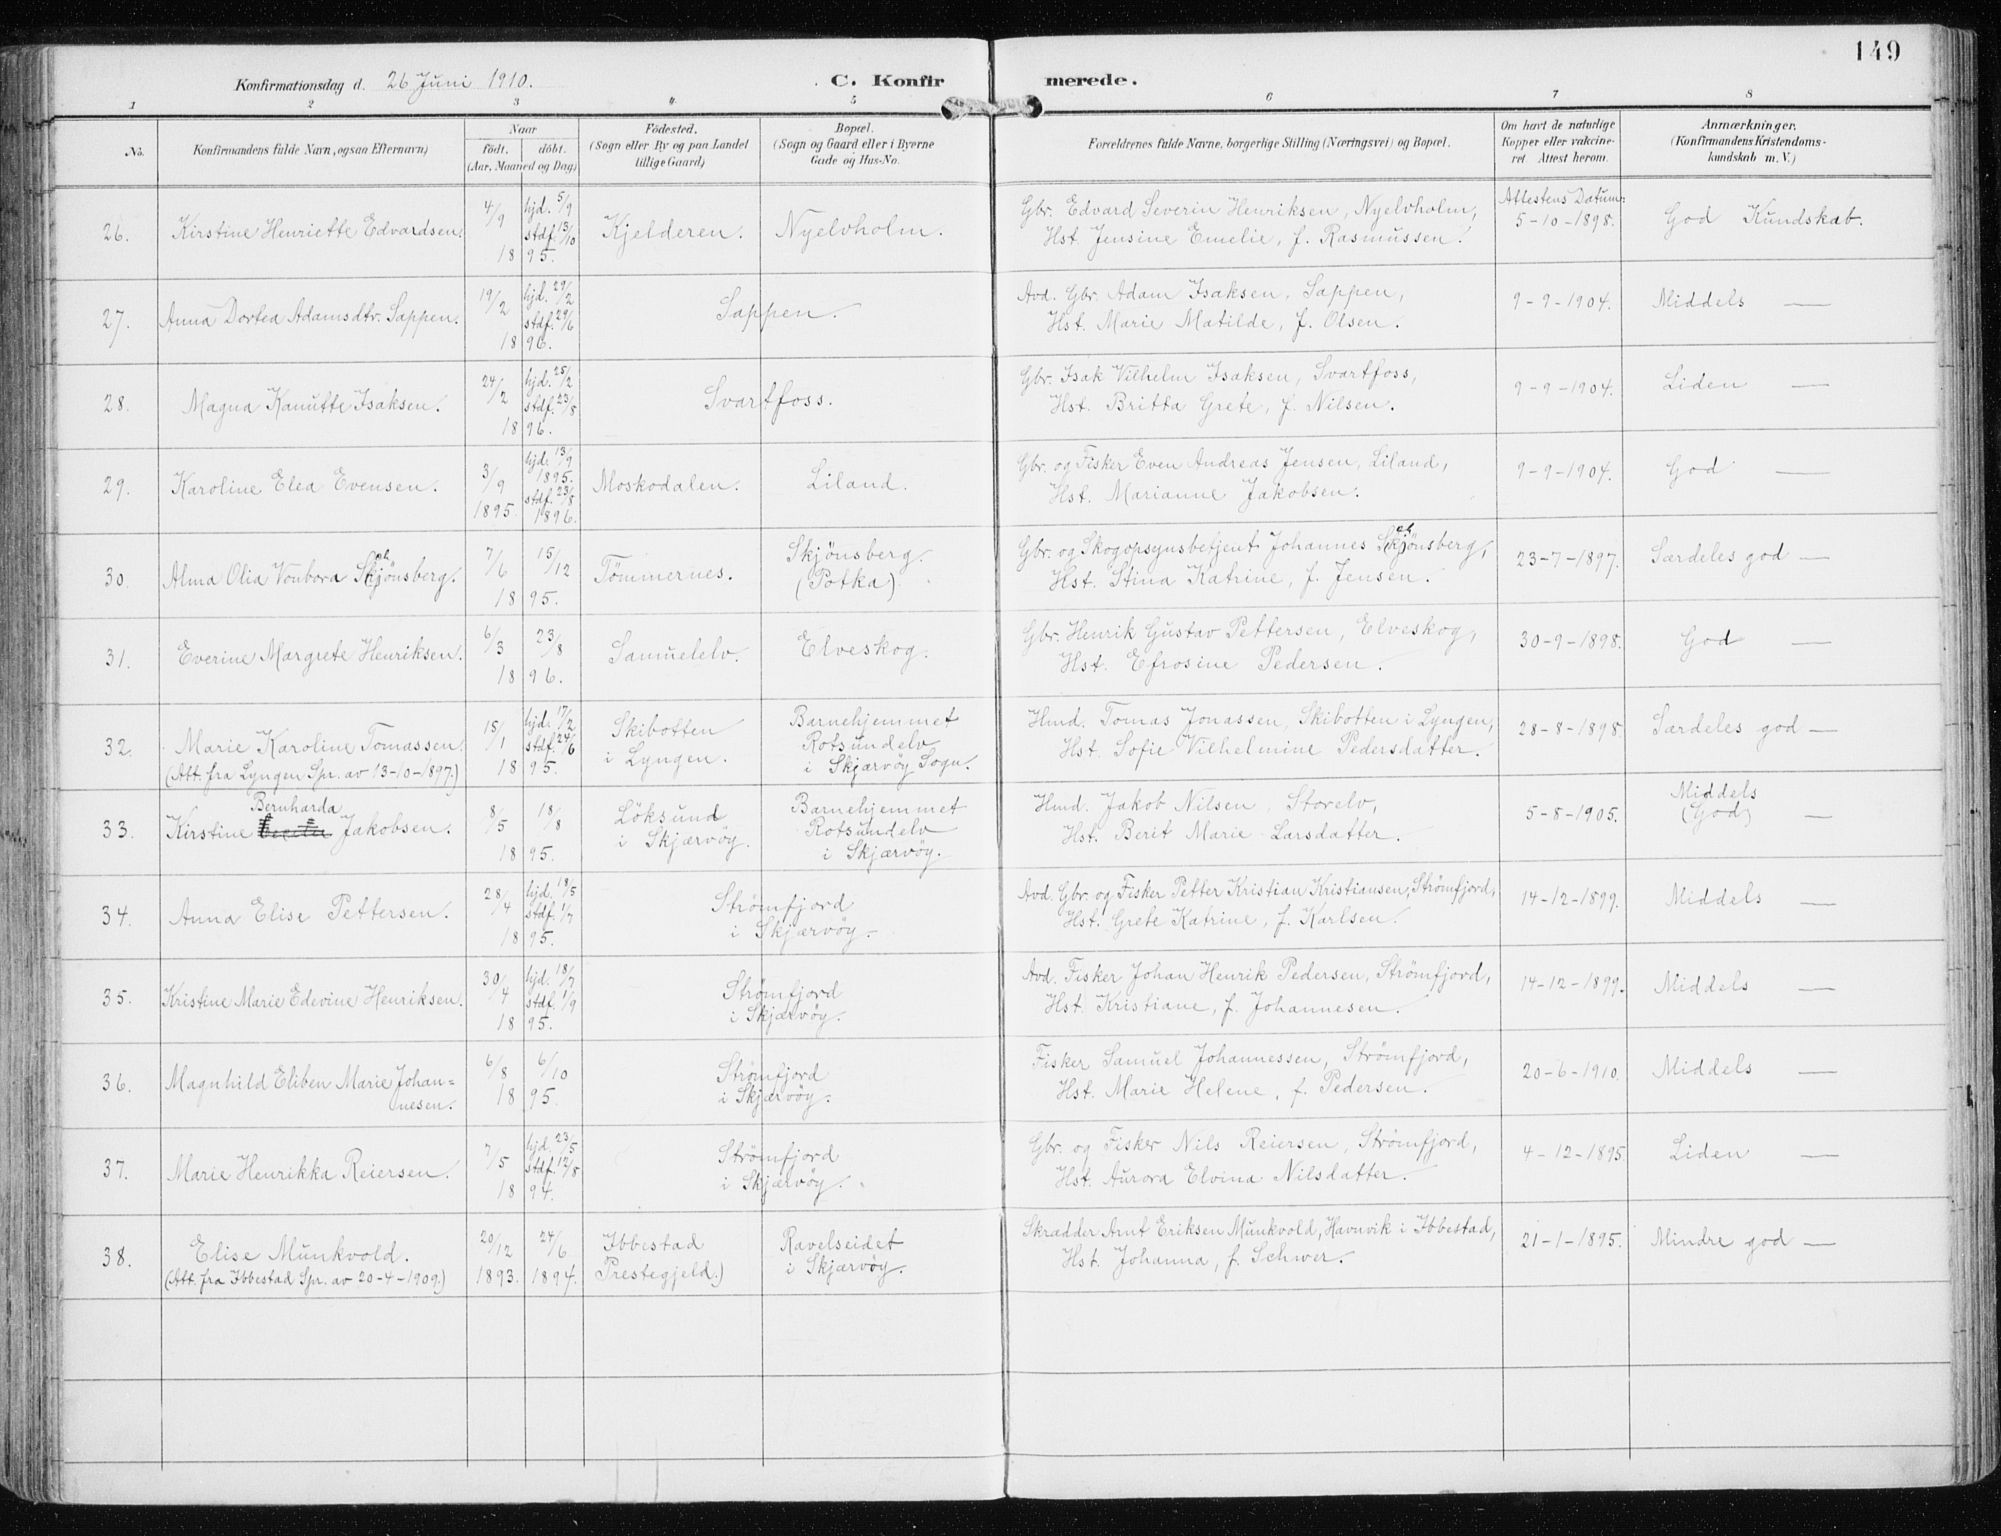 149
Konfirmationsdag d. 26 Juni 1910.
C. Konfirmerede.
1 2 3 4 5 6 7 8
No.
Konfirmandens fulde Navn, ogsaa Efternavn)
Naar
födt. döbt.
(Aar, Maaned og Dag)
Födested.
(Sogn eller By og paa Landet
tillige Gaard)
Bopæl.
(Sogn og Gaard eller i Byerne
Gade og Hus-No.
Forældrenes fulde Navne, borgerlige Stilling (Næringsvei) og Bopæl.
Om havt de naturlige
Kopper eller vakcine-
ret. Attest herom.
Anmærkninger.
(Konfirmandens Kristendoms-
kundskab m. V.)
26. Kirstine Henriette Edvardsen. 4/9 1895. hjd. 5/9 stdf. 13/10 Kjelderen. Nyelvholm.
Gbr. Edvard Severin Henriksen, Nyelvholm,
Hst. Jensine Emelie, f. Rasmussen.
Attestens Datum:
5-10-1898. God Kundskab.
27. Anna Dortea Adamsdtr. Sappen. 19/2 1896. hjd. 29/2 stdf. 29/6 Sappen.
Avd. Gbr. Adam Isaksen, Sappen,
Hst. Marie Matilde, f. Olsen.
9-9-1904. Middels —
28. Magna Kanutte Isaksen. 24/2 1896. hjd. 25/2 stdf. 23/8 Svartfoss.
Gbr. Isak Vilhelm Isaksen, Svartfoss,
Hst. Britta Grete, f. Nilsen.
9-9-1904. Liden —
29. Karoline Elea Evensen. 3/9 1895. hjd. 13/9 1895. stdf. 23/8 1896. Moskodalen. Liland.
Gbr. og Fisker Even Andreas Jensen, Liland,
Hst. Marianne Jakobsen.
9-9-1904. God —
30. Alma Olia Vonbora Skjönsberg. 7/6 15/12 1895. Tömmernes. Skjönsberg.
(Potka).
Gbr. og Skogopsynsbetjent Johannes Skjönsberg,
Hst. Stina Katrine, f. Jensen.
23-7-1897. Særdeles god —
31. Everine Margrete Henriksen. 6/3 23/8 1896. Samuelelv. Elveskog.
Gbr. Henrik Gustav Pettersen, Elveskog,
Hst. Efrosine Pedersen.
30-9-1898. God —
32. Marie Karoline Tomassen.
(Att. fra Lyngen Spr. av 13-10-1897.)
15/1 1895. hjd. 17/2 stdf. 24/6
Skibotten
i Lyngen.
Barnehjemmet
Rotsundelv
i Skjærvöy Sogn.
Hmd. Tomas Jonassen, Skibotten i Lyngen,
Hst. Sofie Vilhelmine Pedersdatter.
28-8-1898. Særdeles god —
33. Kirstine Bernharda Jakobsen. 8/5 18/8 1895.
Löksund
i Skjærvöy.
Barnehjemmet
Rotsundelv
i Skjærvöy.
Hmd. Jakob Nilsen, Storelv,
Hst. Berit Marie Larsdatter.
5-8-1905. Middels
(God) —
34. Anna Elise Pettersen. 28/4 1895. hjd. 18/5 stdf. 1/7
Strömfjord
i Skjærvöy.
Avd. Gbr. og Fisker Petter Kristian Kristiansen, Strömfjord,
Hst. Grete Katrine, f. Karlsen.
14-12-1899. Middels —
35. Kristine Marie Edevine Henriksen. 30/4 1895. hjd. 18/7 stdf. 1/9
Strömfjord
i Skjærvöy.
Avd. Fisker Johan Henrik Pedersen, Strömfjord,
Hst. Kristiane, f. Johannesen.
14-12-1899. Middels —
36. Magnhild Eliben Marie Johan=
nesen.
6/8 6/10 1895.
Strömfjord
i Skjærvöy.
Fisker Samuel Johannessen, Strömfjord,
Hst. Marie Helene, f. Pedersen.
20-6-1910. Middels —
37. Marie Henrikka Reiersen. 7/5 1894. hjd. 23/5 stdf. 12/8
Strömfjord
i Skjærvöy.
Gbr. og Fisker Nils Reiersen, Strömfjord,
Hst. Aurora Elvina Nilsdatter.
4-12-1895. Liden —
38. Elise Munkvold.
(Att. fra Ibbestad Spr. av 20-4-1909.)
20/12 1893. 24/6 1894.
Ibbestad
Prestegjeld.)
Ravelseidet
i Skjærvöy.
Skrædder Arnt Eriksen Munkvold, Havnvik i Ibbestad,
Hst. Johanna, f. Schwer.
21-1-1895. Mindre god —